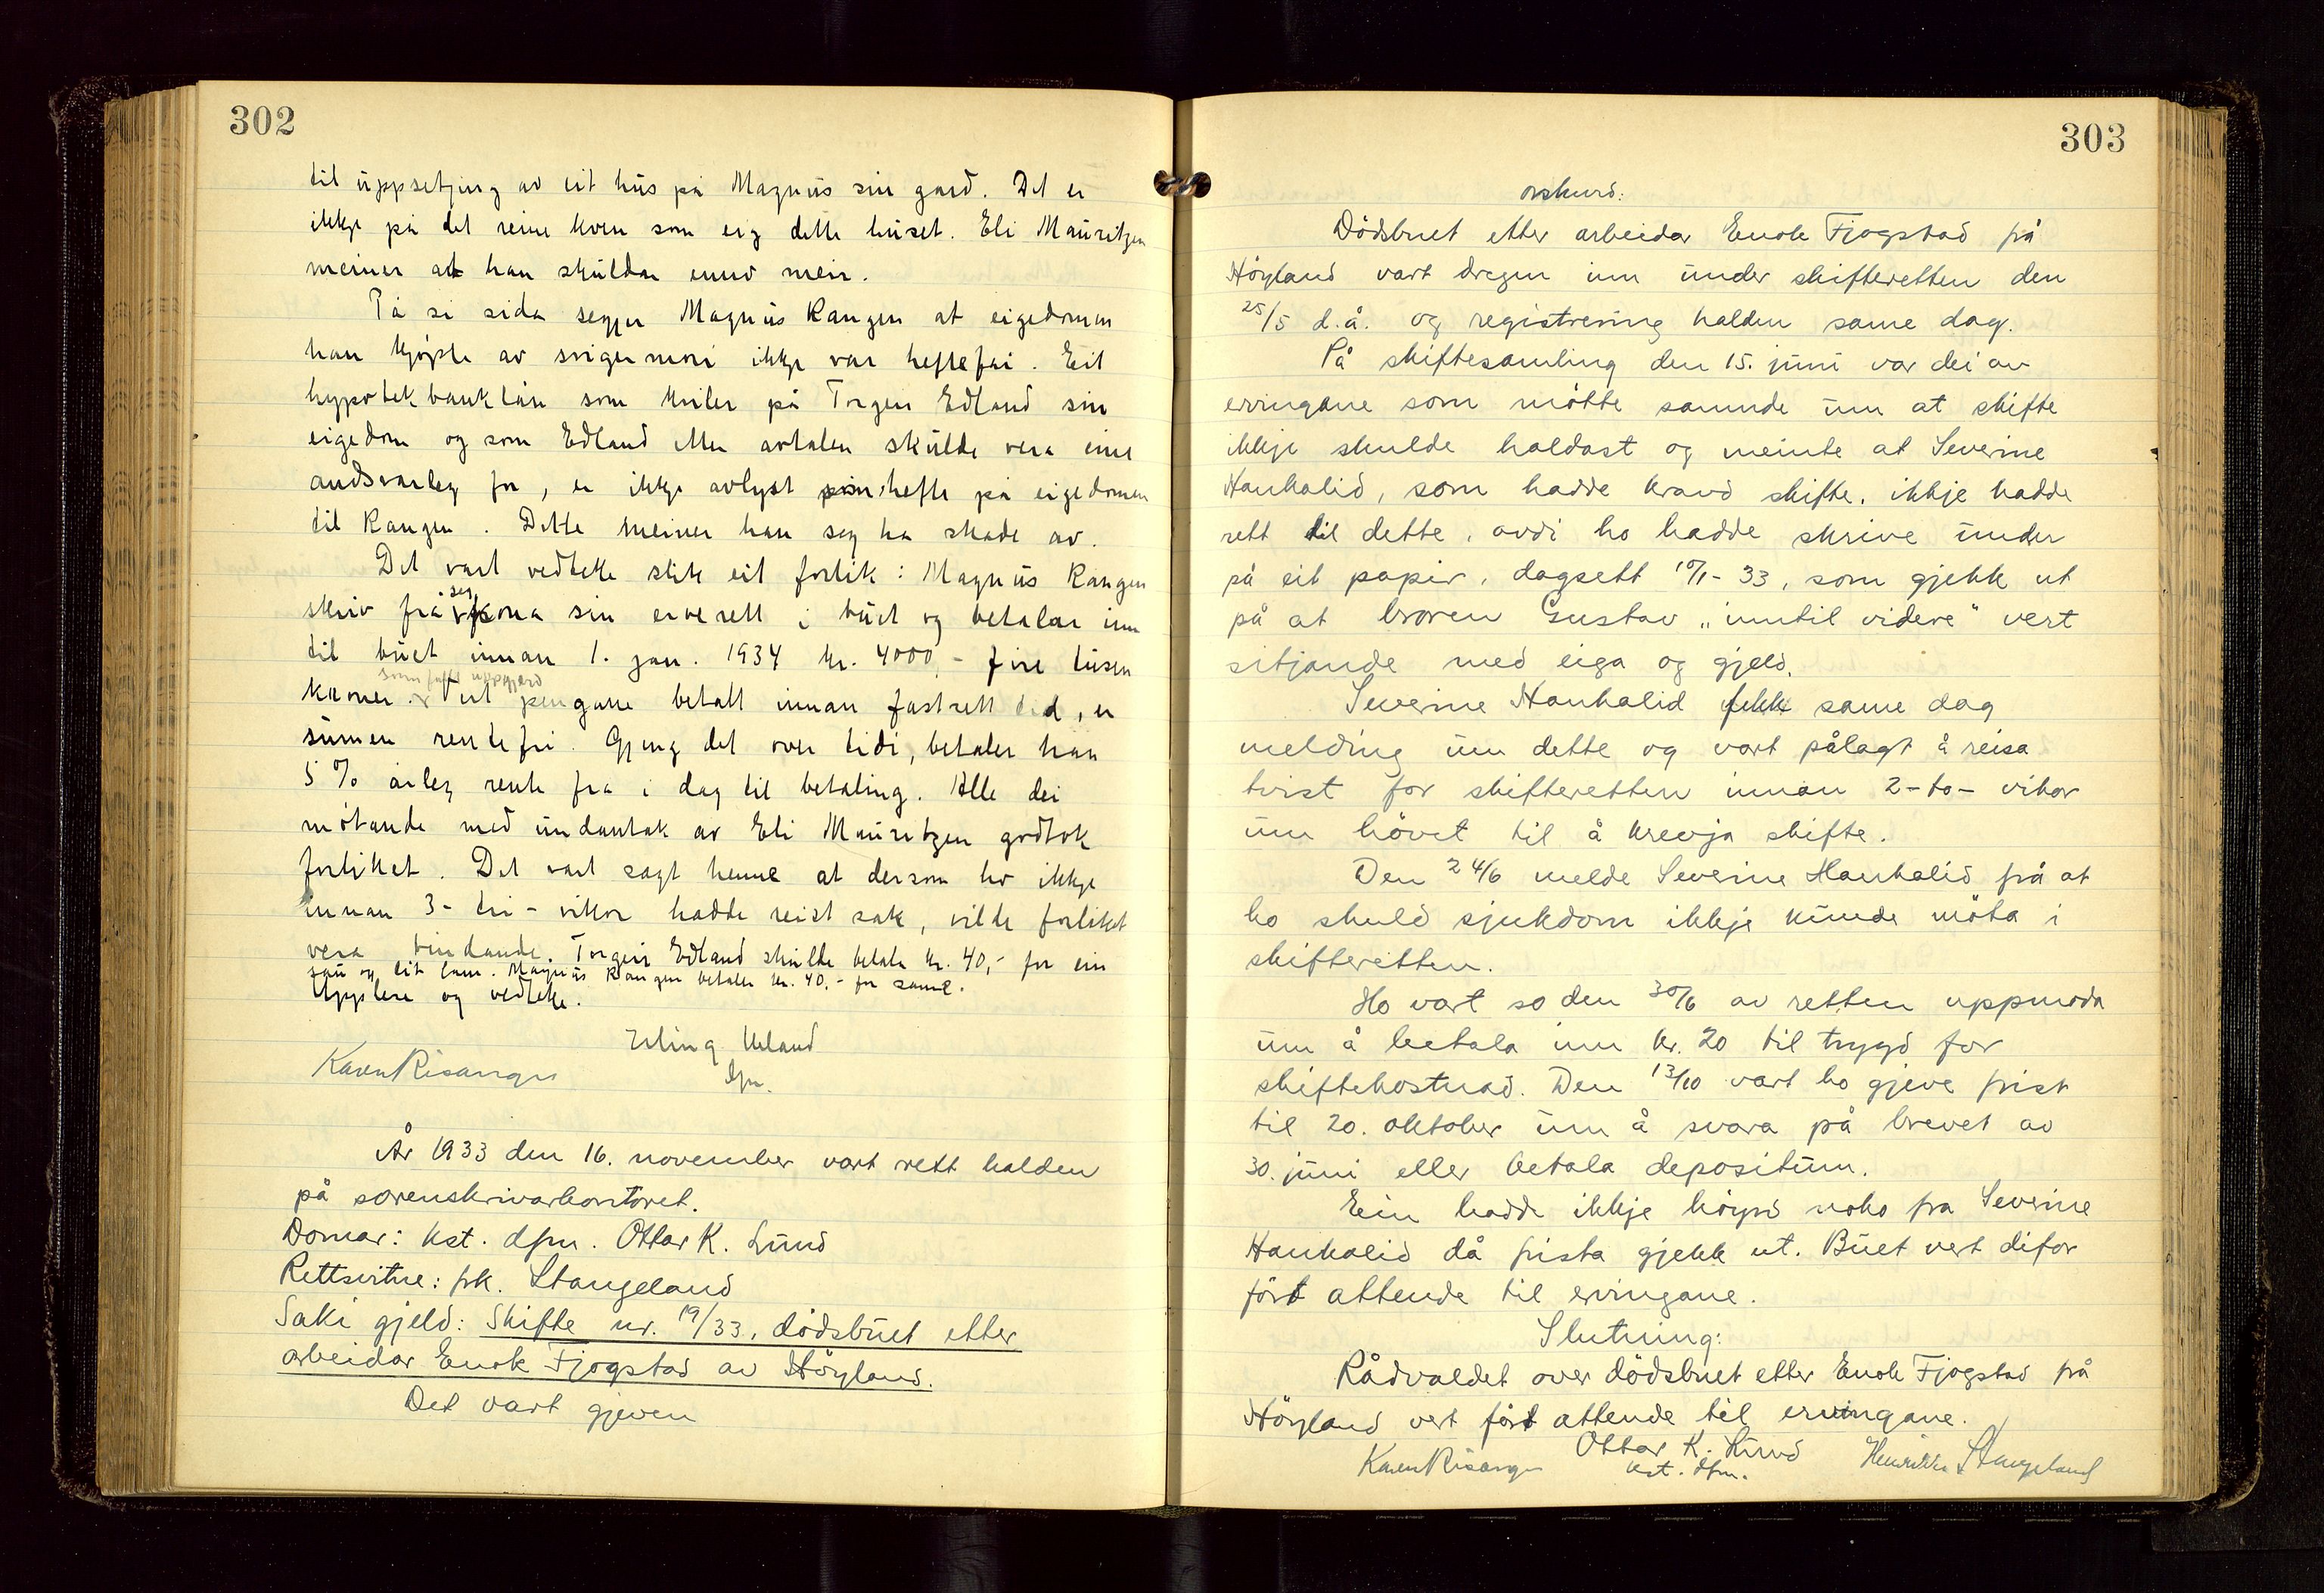 302
til uppsetjing av eit hus på Magnus sin gard. Det er
ikkje på det reine kven som eig dette huset. Eli Mauritzen
meiner at han skuldar ennö meir.
På si sida segjer Magnus Rangen at eigedomen
han kjøpte av svigermori ikkje var heftefri. Eit
hypotekbanklån som kviler på Torger Edland sin
eigedom og som Edland etter avtalen skulde vera eine
andsvarleg for, er ikkje avlyst som hefte på eigedomen
til Rangen. Dette meiner han seg ha skade av.
Det vart vedteke slik eit forlik: Magnus Rangen
seg
skriv frå kona sin arverett i buet og betalar inn
til buet innan 1. jan. 1934 kr. 4000,- fire tusen
som fullt uppgjerd
kroner. Vert pengane betalt innan fastsett tid, er
sumen rentefri. Gjeng det over tidi, betaler han
5 % årleg rente fra i dag til betaling. Alle dei
møtande med undantak av Eli Mauritzen godtok
forliket. Det vart sagt henne at dersom ho ikkje
innan 3- tri - vikor hadde reist sak, vilde forliket
vera bindande. Torger Edland skulde betale kr. 40,- for ein
sau og eit lam. Magnus Rangen betaler kr. 40,- for same.
Upplese og vedteke.
Erling Ueland
Karen Risanger
dfm.
År 1933 den 16. november vart rett halden
på sorenskrivarkontoret.
Domar: kst. dfm. Ottar K. Lund
Rettsvitne: frk. Stangeland
Saki gjeld: Skifte nr. 19/33, dödsbuet etter
arbeidar Enok Fjogstad av Höyland.
Det vart gjeven
303
orskurd:
Dödsbuet etter arbeidar Enok Fjogstad på
Höyland vart dregen inn under skifteretten den
25/5 d.å. og registrering halden same dag.
På skiftesamling den 15. juni var dei av
ervingane som møtte samnde um at skifte
ikkje skulde haldast og meinte at Severine
Haukalid, som hadde kravd skifte, ikkje hadde
rett til dette, avdi ho hadde skrive under
på eit papir, dagsett 10/1-33, som gjekk ut
på at broren Gustav „inntil videre" vert
sitjande med eiga og gjeld.
Severine Haukalid fekk same dag
melding um dette og vart pålagt å reisa
tvist for skifteretten innan 2-to- vikor
um hövet til å krevja skifte.
Den 24/6 melde Severine Haukalid frå at
ho skuld sjukdom ikkje kunde möta i
skifteretten.
Ho vart so den 30/6 av retten uppmoda
um å betala inn kr. 20 til trygd for
skiftekostnad. Den 13/10 vart ho gjeve frist
til 20. oktober um å svara på brevet av
30. juni eller betala depositum.
Ein hadde ikkje höyrd noko fra Severine
Haukalid då frista gjekk ut. Buet vert difor
fört attende til ervingane.
Slutning:
Rådvaldet over dödsbuet etter Enok Fjogstad på
Höyland vert fört attende til ervingane.
Karen Risanger Ottar K. Lund Henrikke Stangeland
kst. dfm.